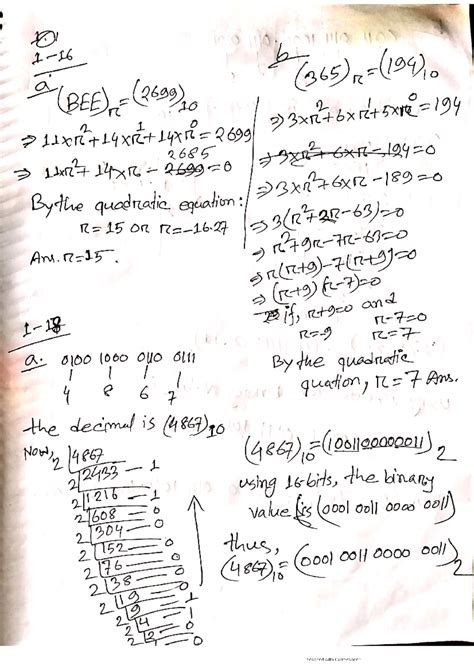 1-16
a.
(BEE)r = (2699)10
⇒ 11×r² + 14×r¹ + 14×r⁰ = 2699
⇒ 11×r² + 14×r - 2699 = 0
2685
By the quadratic equation:
r = 15 or r = -16.27
Ans. r = 15.
b
(365)r = (194)10
⇒ 3×r² + 6×r¹ + 5×r⁰ = 194
⇒ 3×r² + 6×r - 194 = 0
⇒ 3×r² + 6×r - 189 = 0
⇒ 3(r² + 2r - 63) = 0
⇒ r² + 9r - 7r - 63 = 0
⇒ r(r+9) - 7(r+9) = 0
⇒ (r+9) (r-7) = 0
if, r+9=0 and r-7=0
r=-9 r=7
By the quadratic
quation, r = 7 Ans.
1-18
a. 0100 1000 0110 0111
4 8 6 7
the decimal is (4867)10
Now, 2 | 4867
2 | 2433 — 1
2 | 1216 — 1
2 | 608 — 0
2 | 304 — 0
2 | 152 — 0
2 | 76 — 0
2 | 38 — 0
2 | 19 — 0
2 | 9 — 1
2 | 4 — 1
2 | 2 — 0
(4867)10 = (1001100000011)2
using 16 bits, the binary
value is (0001 0011 0000 0011)
thus,
(4867)10 = (0001 0011 0000 0011)2